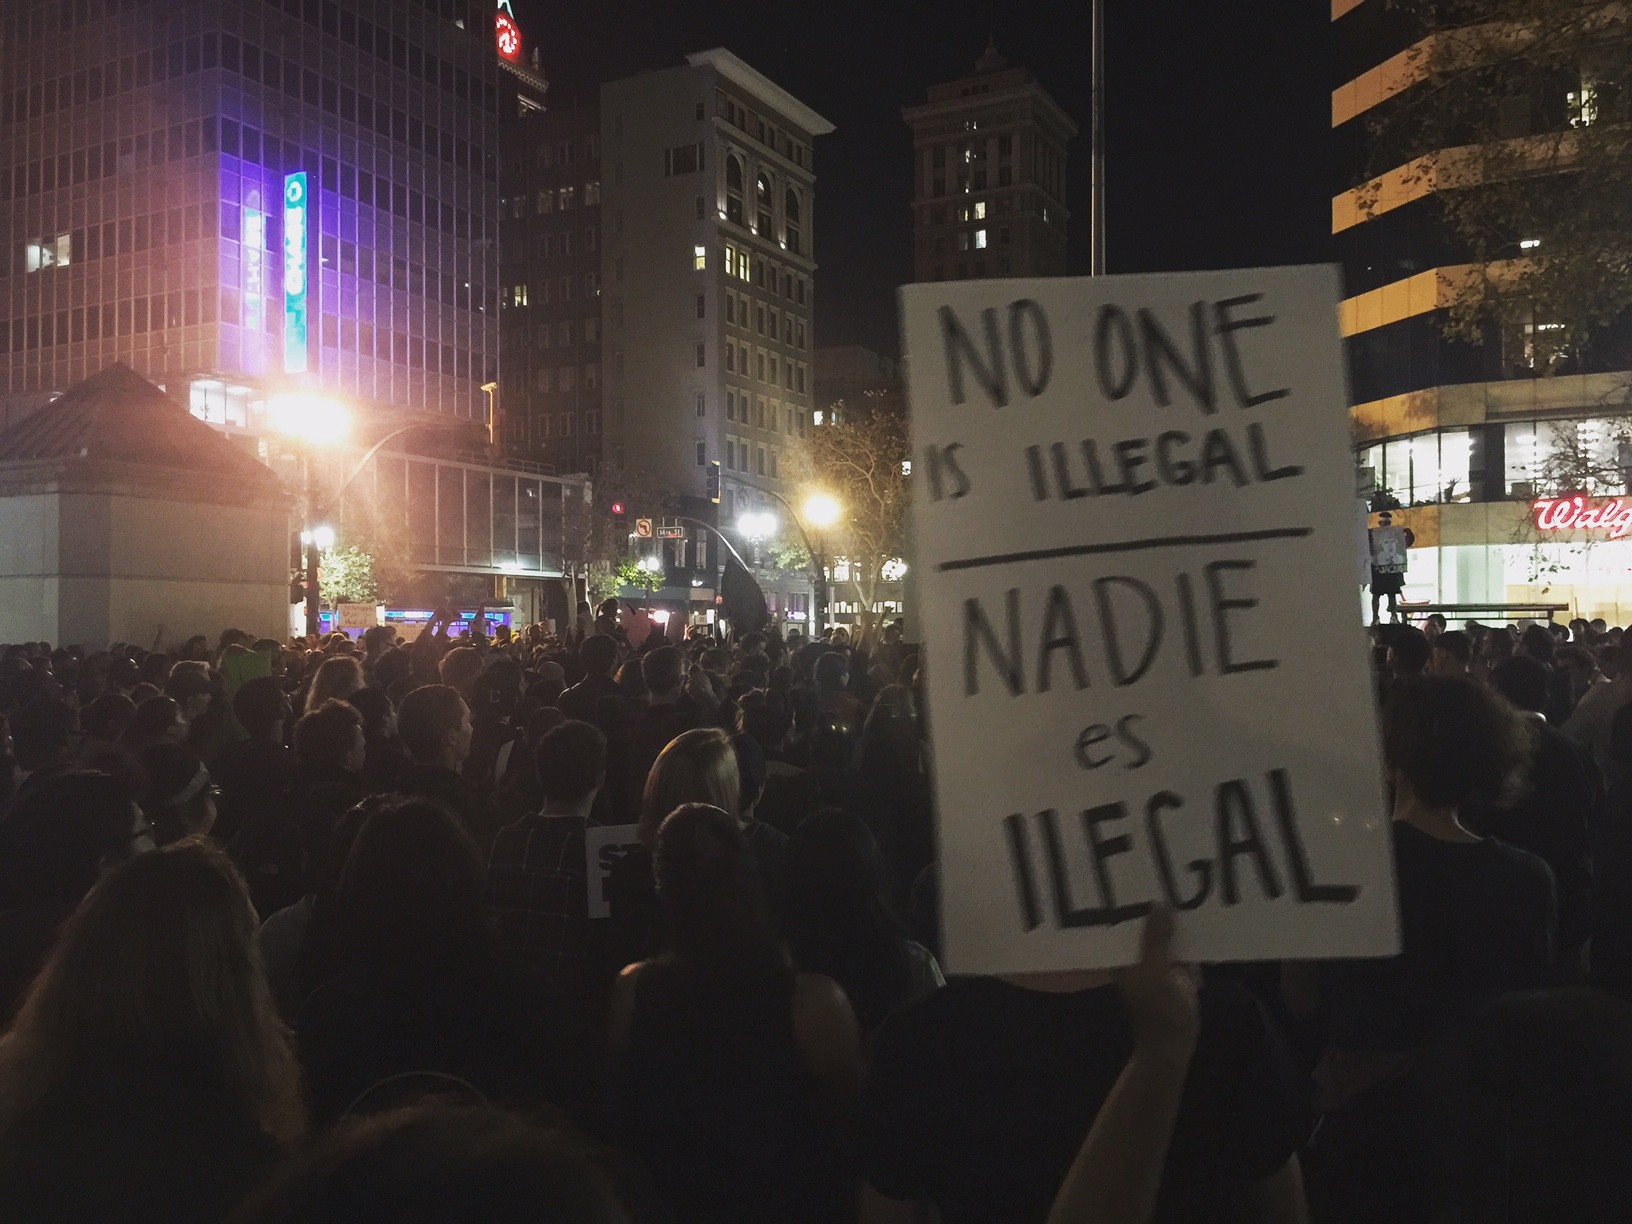 NO ONE
IS ILLEGAL
NADIE
es
ILEGAL
14th St